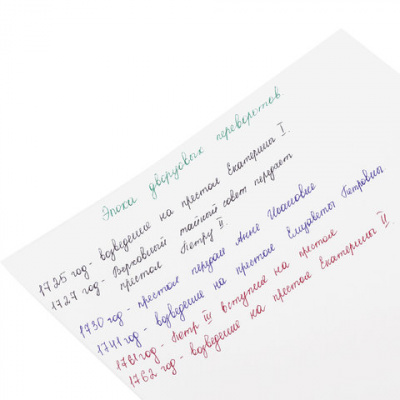 Эпоха дворцовых переворотов.
1725 год - возведение на престол Екатерины I.
1727 год - Верховный тайный совет передаёт
престол Петру II.
1730 год - престол передан Анне Иоановне
1741 год - возведение на престол Елизаветы Петровны
1761 год - Пётр III вступил на престол
1762 год - возведение на престол Екатерины II.